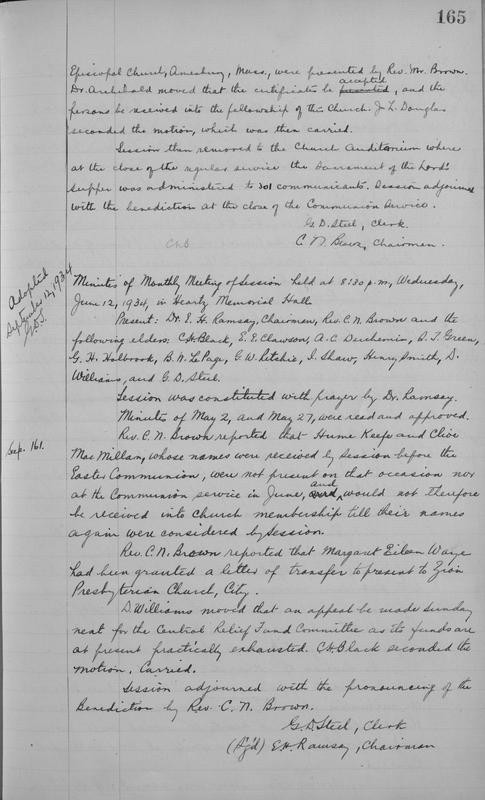 165
Episcopal Church, Amesbury, Mass., were presented by Rev. Mr. Brown.
Dr. Archibald moved that the certificates be presented accepted, and the
persons be received into the fellowship of the Church. J. L. Douglas
seconded the motion, which was then carried.
Session then removed to the Church Auditorium where
at the close of the regular service the Sacrament of the Lord's
Supper was administered to 301 communicants. Session adjourned
with the benediction at the close of the Communion Service.
G. D. Steel, Clerk.
C. N. Brown, Chairman.
CNB
Adopted
September 12, 1934
GDS.
Minutes of Monthly Meeting of Session held at 8:30 p.m., Wednesday,
June 12, 1934, in Heartz Memorial Hall.
Present: Dr. E. H. Ramsay, Chairman, Rev. C. N. Brown and the
following elders: C. H. Black, E. E. Clawson, A. C. Duchemin, S. T. Green,
G. H. Holbrook, B. N. LePage, G. W. Ritchie, I. Shaw, Henry Smith, D.
Williams, and G. D. Steel.
Session was constituted with prayer by Dr. Ramsay.
Minutes of May 2, and May 27, were read and approved.
See p. 161.
Rev. C. N. Brown reported that Hume Keefe and Clive
MacMillan, whose names were received by Session before the
Easter Communion, were not present on that occasion nor
at the Communion service in June, and, would not therefore
be received into Church membership till their names
again were considered by Session.
Rev. C. N. Brown reported that Margaret Eileen
had been granted a letter of transfer to present to Zion
Presbyterian Church, City.
D. Williams moved that an appeal be made Sunday
next for the Central Relief Fund Committee as its funds are
at present practically exhausted. C. H. Black seconded the
motion. Carried.
Session adjourned with the pronouncing of the
Benediction by Rev. C. N. Brown.
G. D. Steel, Clerk
(Sg'd) E. H. Ramsay, Chairman